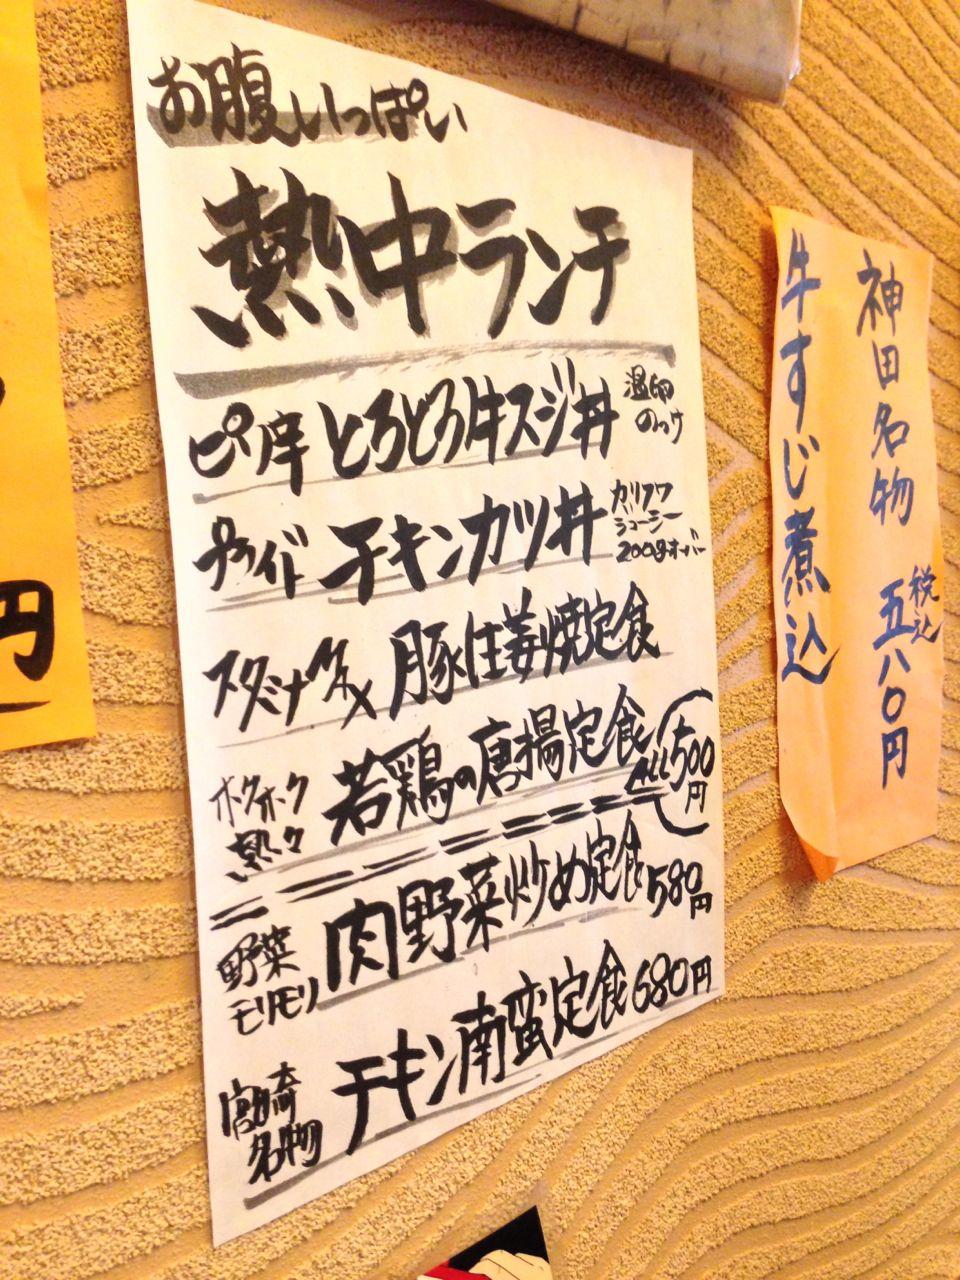 お腹いっぱい
熱中ランチ
ピリ辛 とろとろ牛スジ丼 温卵のっけ
プライド チキンカツ丼 カリフワ ジューシー 200gオーバー
スタミナ 豚生姜焼定食
ホクホク 熱々 若鶏の唐揚定食
ALL 500円
野菜モリモリ 肉野菜炒め定食 580円
宮崎名物 チキン南蛮定食 680円
神田名物 税込 五八〇円
牛すじ煮込
円